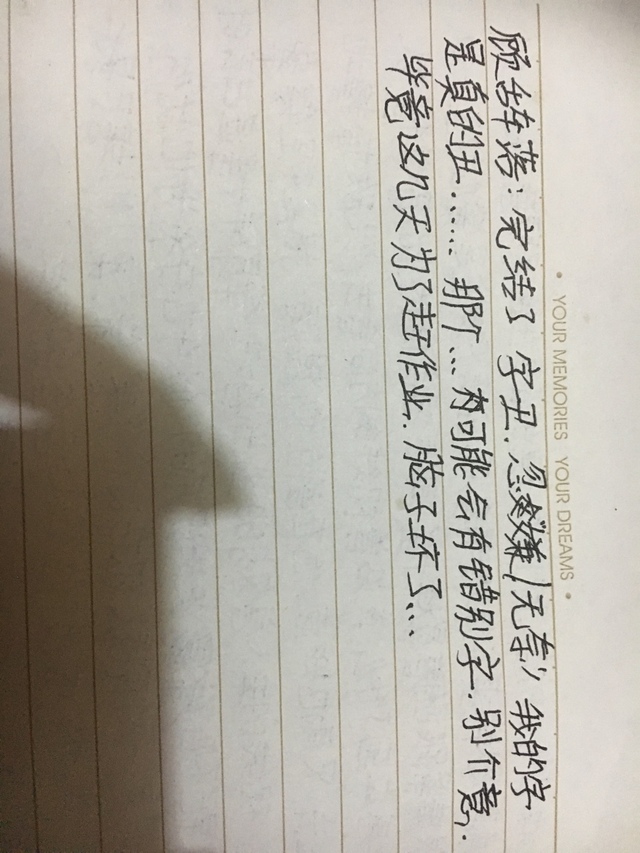 YOUR MEMORIES YOUR DREAMS
顾舌辛落：完结了 字丑.忽嫌(无奈)) 我的字
是真的丑……那个…有可能会有错别字.别介意.
毕竟这几天为了赶作业.脑子坏了…